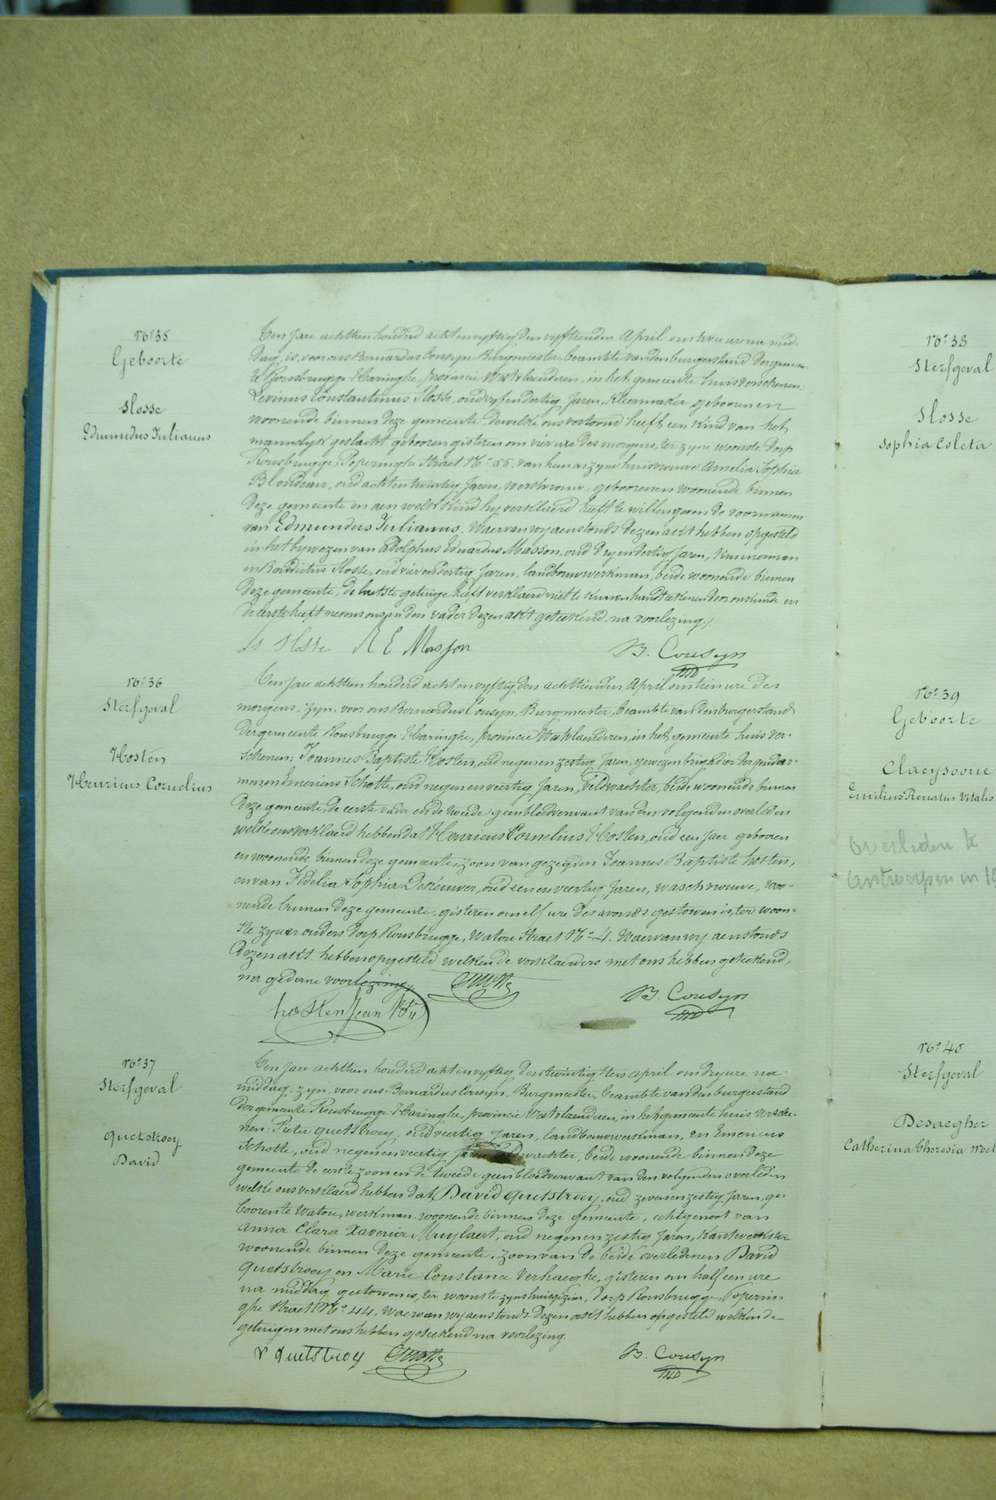 No 35
Geboorte
Slosse
Edmundus Julianus
Ten jare achttien honderd acht en vyftig den vyftienden April om twee uren na mid-
dag, is, voor ons Bernardus Cousyn Burgmeester, beambte van den burgerstand der gemeen-
te Rousbrugge Haringhe, provincie Westvlaenderen, in het gemeente huis verschenen
Livinus Constantinus Slosse, oud vyfendertig Jaren, Kleermaker geboren en
woonende binnen deze gemeente, dewelke ons vertoond heeft een kind van het
mannelyk geslacht, geboren gisteren om vier ure des morgens, ter zyne woonste Dorp
Rousbrugge, Poperinghe Straet No 55, van hem en zyne huisvrouwe Amelia Sophia
Blondeau, oud achtentwintig Jaren, geboren en woonende binnen
deze gemeente en aen welk kind hy verklaerd heeft te willen geven de voornamen
van Edmundus Julianus, Waervan wy aenstonds dezen act hebben opgesteld
in het bywezen van Adolphus Eduardus Masson, oud dryendertig Jaren, Timmerman
en Benedictus Slosse, oud vierendertig Jaren, landbouwwerkman, beide woonende binnen
deze gemeente, de laetste getuige heeft verklaerd niet te kunnen handteekenen
de eerste heeft nevens ons en den vader dezen act geteekend, na voorlezing.
Ls Slosse A E Masson B. Cousyn
No 36
Sterfgeval
Hosten
Henricus Cornelius
Ten jare achttien honderd acht en vyftig den achttienden April om tien ure des
morgens, zyn, voor ons Bernardus Cousyn, Burgmeester, beambte van den burgerstand
der gemeente Rousbrugge Haringhe, provincie Westvlaenderen, in het gemeente huis ver-
schenen: Joannes Baptiste Hosten, oud negen en zestig Jaren, gewezen
en Emericus Schotte, oud negen en veertig Jaren, Veldwachter, beide woonende binnen
deze gemeente, de eerste vader en de tweede geenbloedverwant van den volgenden overleden
welke ons verklaerd hebben dat Henricus Cornelius Hosten, oud een jaer geboren
en woonende binnen deze gemeente, zoon van gezegden Joannes Baptiste Hosten,
en van Fidelia Sophia oud een en veertig Jaren, waschvrouwe, woo-
nende binnen deze gemeente, gisteren om elf ure des avonds gestorven is, ter woon-
ste zyner ouders Dorp Rousbrugge, Watou Straet No 4. Waervan wy aenstonds
dezen act hebben opgesteld welken de verklaerders met ons hebben geteekend,
na gedane voorlezing.
hosten Jean Bte B. Cousyn
No 37
Sterfgeval
Quetstroey
David
Ten jare achttien honderd acht en vyftig den twintigsten april om dry ure na-
middag, zyn, voor ons Bernardus Cousyn, Burgmeester, beambte van den burgerstand
der gemeente Rousbrugge Haringhe, provincie Westvlaenderen, in het gemeente huis versche-
nen: Pieter Quetstroey, oud veertig Jaren, landbouwwerkman, en Emericus
Schotte, oud negen en veertig Jaren, Veldwachter, beide woonende binnen deze
gemeente de eerste zoon en de tweede geen bloedverwant van den volgenden overleden
welke ons verklaerd hebben dat, David Quetstroey, oud zevenenzestig Jaren, ge-
boren te Watou, werkman, woonende binnen deze gemeente, echtgenoot van
Anna Clara Xaveria Muylaert, oud negen en zestig Jaren, Kantwerkster
woonende binnen deze gemeente, zoon van de beide overledenen David
Quetstroey en Marie Constance Verhaeghe, gisteren om half een ure
na middag gestorven is, ter woonste zyns huisgezins, Dorp Rousbrugge, Poperin-
ghe Straet No 44. Waervan wy aenstonds dezen act hebben opgesteld welken de
getuigen met ons hebben geteekend na voorlezing.
P Quetstroey B. Cousyn
No 38
Sterfgeval
Slosse
Sophia Coleta
No 39
Geboorte
Claeyssoone
Emilius Renatus Vitalis
Overleden te
Antwerpen in
No 40
Sterfgeval
Desaegher
Catherina Theresia